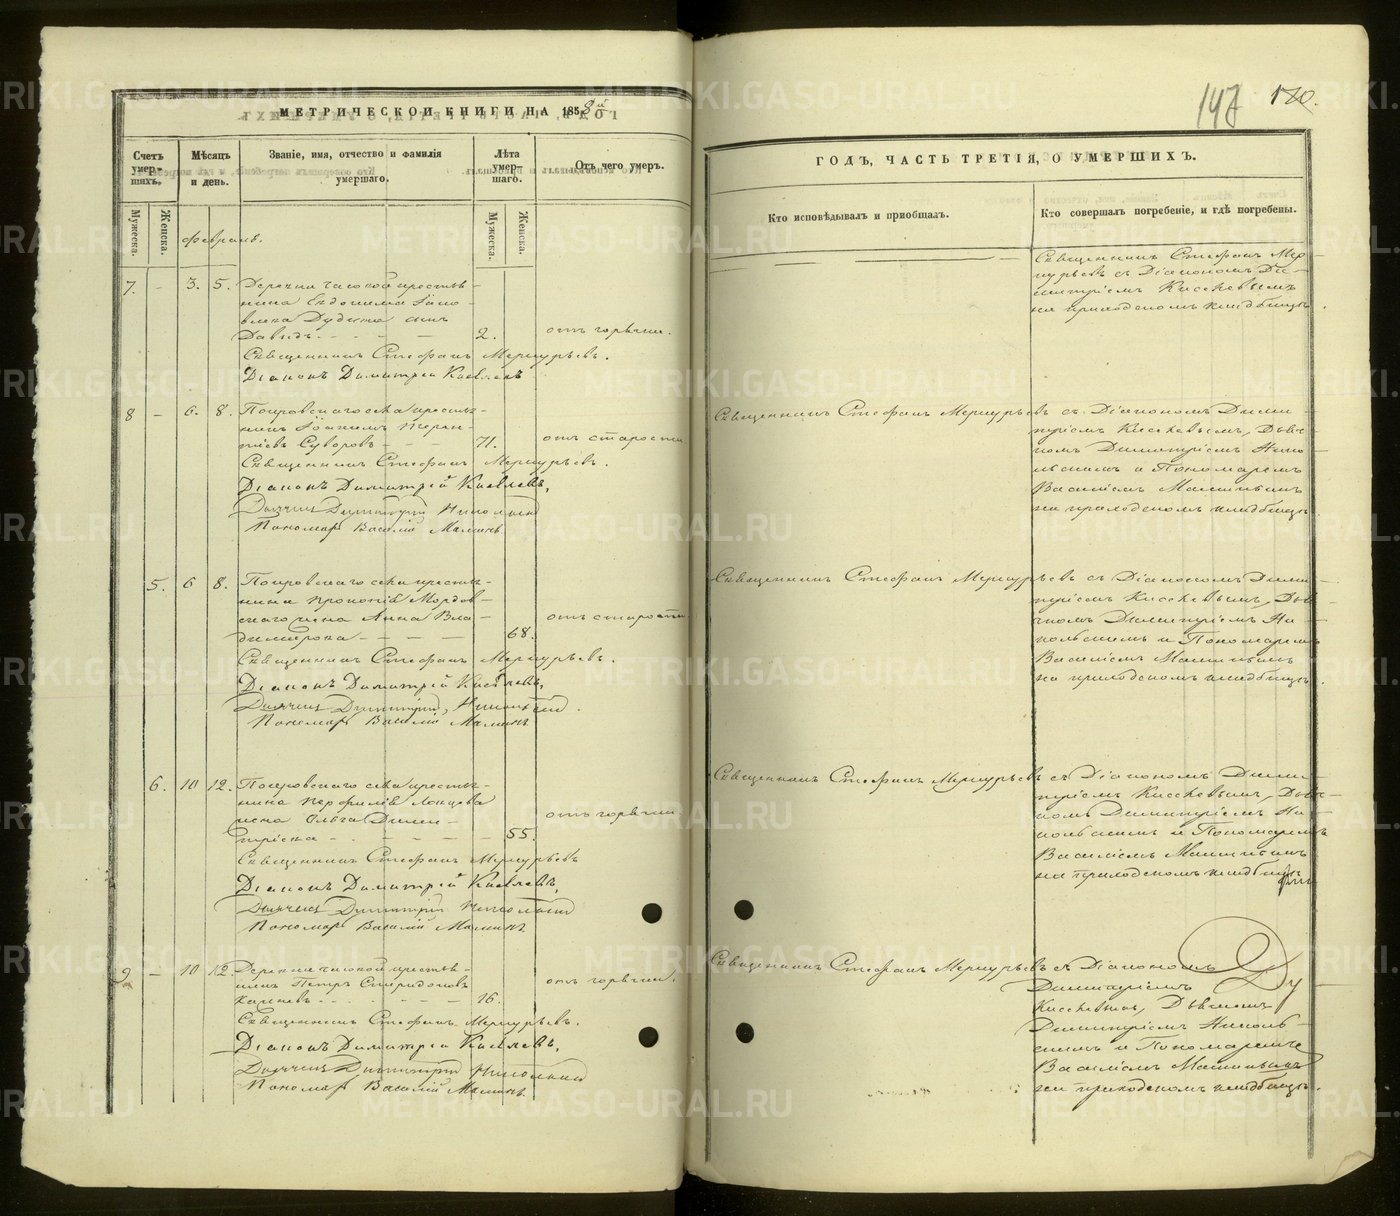 МЕТРИЧЕСКОЙ КНИГИ НА 1858й
Счетъ умершихъ.
Мѣсяцъ и день.
Званіе, имя, отчество и фамилія умершаго.
Лѣта умершаго.
Отъ чего умеръ.
Мужеска.
Женска.
Мужеска.
Женска.
Февраль.
7. - 3. 5. Деревни Часовой крестья-
нина Евдокима
сынъ
Давидъ 2. отъ горячки.
Священникъ Стефанъ Меркурьевъ.
Діаконъ Димитрій Киселевъ
8 - 6. 8. Покровскаго села кресть-
нинъ Іоакимъ Терен-
тіевъ Суворовъ 71. отъ старости
Священникъ Стефанъ Меркурьевъ.
Діаконъ Димитрій Киселевъ,
Дьячекъ Димитрій Никольскій
Пономарь Василій Маминъ
5. 6 8. Покровскаго села кресть-
нина Прокопія Мордов-
скаго жена Анна Вла-
димірова 68. отъ старости
Священникъ Стефанъ Меркурьевъ.
Діаконъ Димитрій Киселевъ,
Дьячекъ Димитрій Никольскій.
Пономарь Василій Маминъ
6. 10 12. Покровскаго села кресть-
нина Перфилія
жена Ольга Дими-
тріева 55. отъ горячки.
Священникъ Стефанъ Меркурьевъ
Діаконъ Димитрій Киселевъ,
Дьячекъ Димитрій Никольскій
Пономарь Василій Маминъ
9 - 10 12. Деревни Часовой крестья-
нинъ Петръ Спиридоновъ
16. отъ горячки.
Священникъ Стефанъ Меркурьевъ.
Діаконъ Димитрій Киселевъ,
Дьячекъ Димитрій Никольскій
Пономарь Василій Маминъ
147 180.
ГОДЪ, ЧАСТЬ ТРЕТІЯ, О УМЕРШИХЪ.
Кто исповѣдывалъ и пріобщалъ.
Кто совершалъ погребеніе, и гдѣ погребены.
Священникъ Стефанъ Мер-
курьевъ съ Діакономъ Ди-
митріемъ Киселевымъ
на приходскомъ кладбищѣ.
Священникъ Стефанъ Меркурьевъ съ Діакономъ Дими-
тріемъ Киселевымъ, Дьяч-
комъ Димитріемъ Нико-
льскимъ и Пономаремъ
Василіемъ Маминымъ
на приходскомъ кладбищѣ
Священникъ Стефанъ Меркурьевъ съ Діакономъ Дими-
тріемъ Киселевымъ, Дья-
чкомъ Димитріемъ Ни-
кольскимъ и Пономаремъ
Василіемъ Маминымъ
на приходскомъ кладбищѣ.
Священникъ Стефанъ Меркурьевъ съ Діакономъ Дими-
тріемъ Киселевымъ, Дьяч-
комъ Димитріемъ Ни-
кольскимъ и Пономаремъ
Василіемъ Маминымъ
на приходскомъ кладбищѣ
Священникъ Стефанъ Меркурьевъ съ Діакономъ
Димитріемъ
Киселевымъ, Дьячкомъ
Димитріемъ Николь-
скимъ и Пономаремъ
Василіемъ Маминымъ
на приходскомъ кладбищѣ.
METRIKI.GASO-URAL.RU